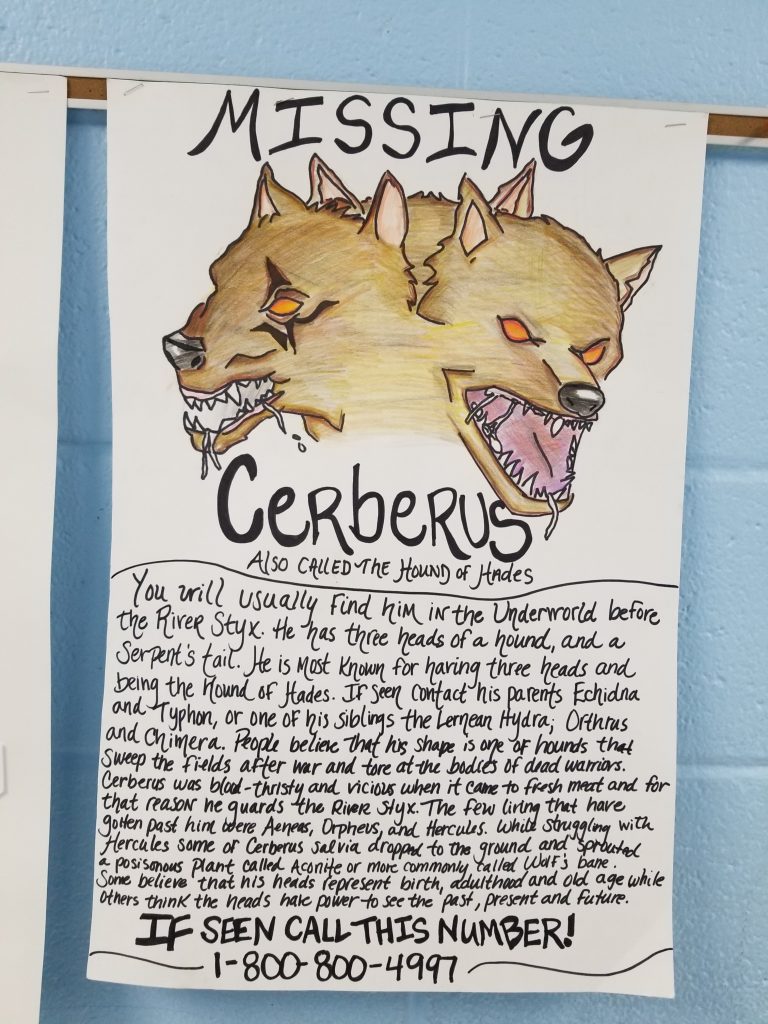 MISSING
CERBERUS
ALSO CALLED THE HOUND OF HADES
You will usually find him in the Underworld before
the River Styx. He has three heads of a hound, and a
Serpent's tail. He is most known for having three heads and
being the hound of Hades. If seen contact his parents Echidna
and Typhon, or one of his siblings the Lernean Hydra; Orthrus
and Chimera. People believe that his shape is one of hounds that
sweep the fields after war and tore at the bodies of dead warriors.
Cerberus was blood-thristy and vicious when it came to fresh meat and for
that reason he guards the River Styx. The few living that have
gotten past him were Aeneas, Orpheus, and Hercules. While struggling with
Hercules some of Cerberus salvia dropped to the ground and sprouted
a posisonous plant called Aconite or more commonly called Wolf's bane.
Some believe that his heads represent birth, adulthood and old age while
others think the heads have power to see the past, present and future.
IF SEEN CALL THIS NUMBER!
1-800-800-4997